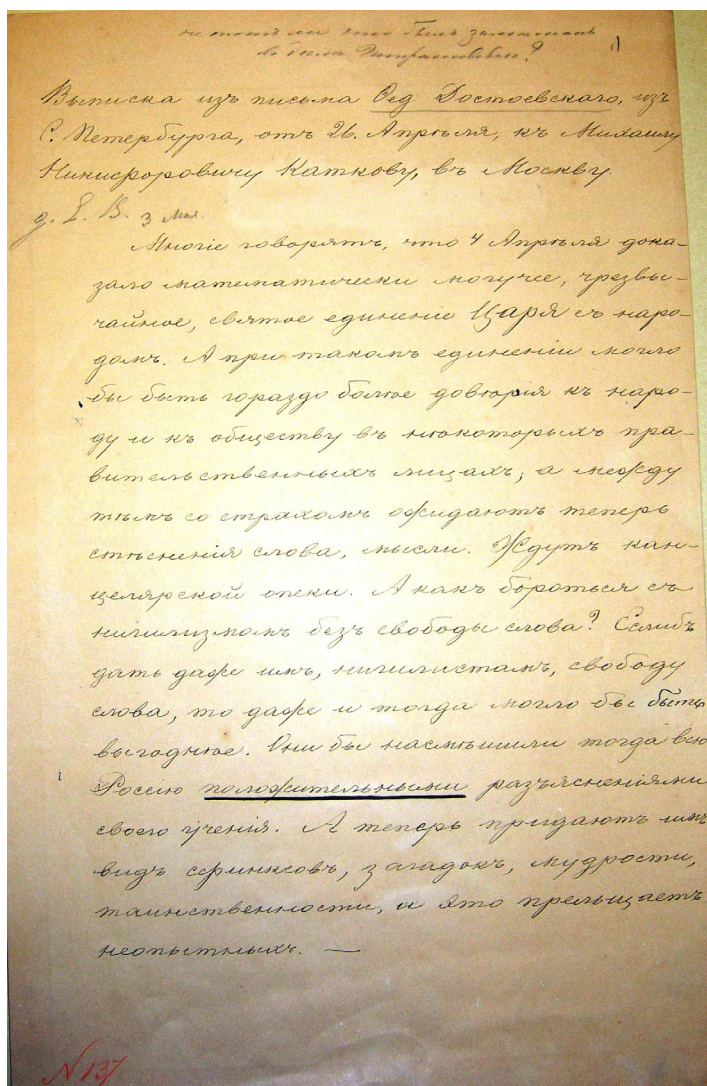 не тотъ ли это былъ замѣшанъ
въ дѣлѣ Петрашевскаго?
Выписка изъ письма Ѳед. Достоевскаго, изъ
С. Петербурга, отъ 26. Апрѣля, къ Михаилу
Никифоровичу Каткову, въ Москву.
3 Мая.
Многіе говорятъ, что 4 Апрѣля дока-
зало математически могучее, чрезвы-
чайное, святое единеніе Царя съ наро-
домъ. А при такомъ единеніи могло
бы быть гораздо болѣе довѣрія къ наро-
ду и къ обществу въ нѣкоторыхъ пра-
вительственныхъ лицахъ; а между
тѣмъ со страхомъ ожидаютъ теперь
стѣсненія слова, мысли. Ждутъ кан-
целярской опеки. А какъ бороться съ
нигилизмомъ безъ свободы слова? Еслибъ
дать даже имъ, нигилистамъ, свободу
слова, то даже и тогда могло бы быть
выгоднѣе. Они бы насмѣшили тогда всю
Россію положительными разъясненіями
своего ученія. А теперь придаютъ имъ
видъ сфинксовъ, загадокъ, мудрости,
таинственности, а это прельщаетъ
неопытныхъ. —
N 137